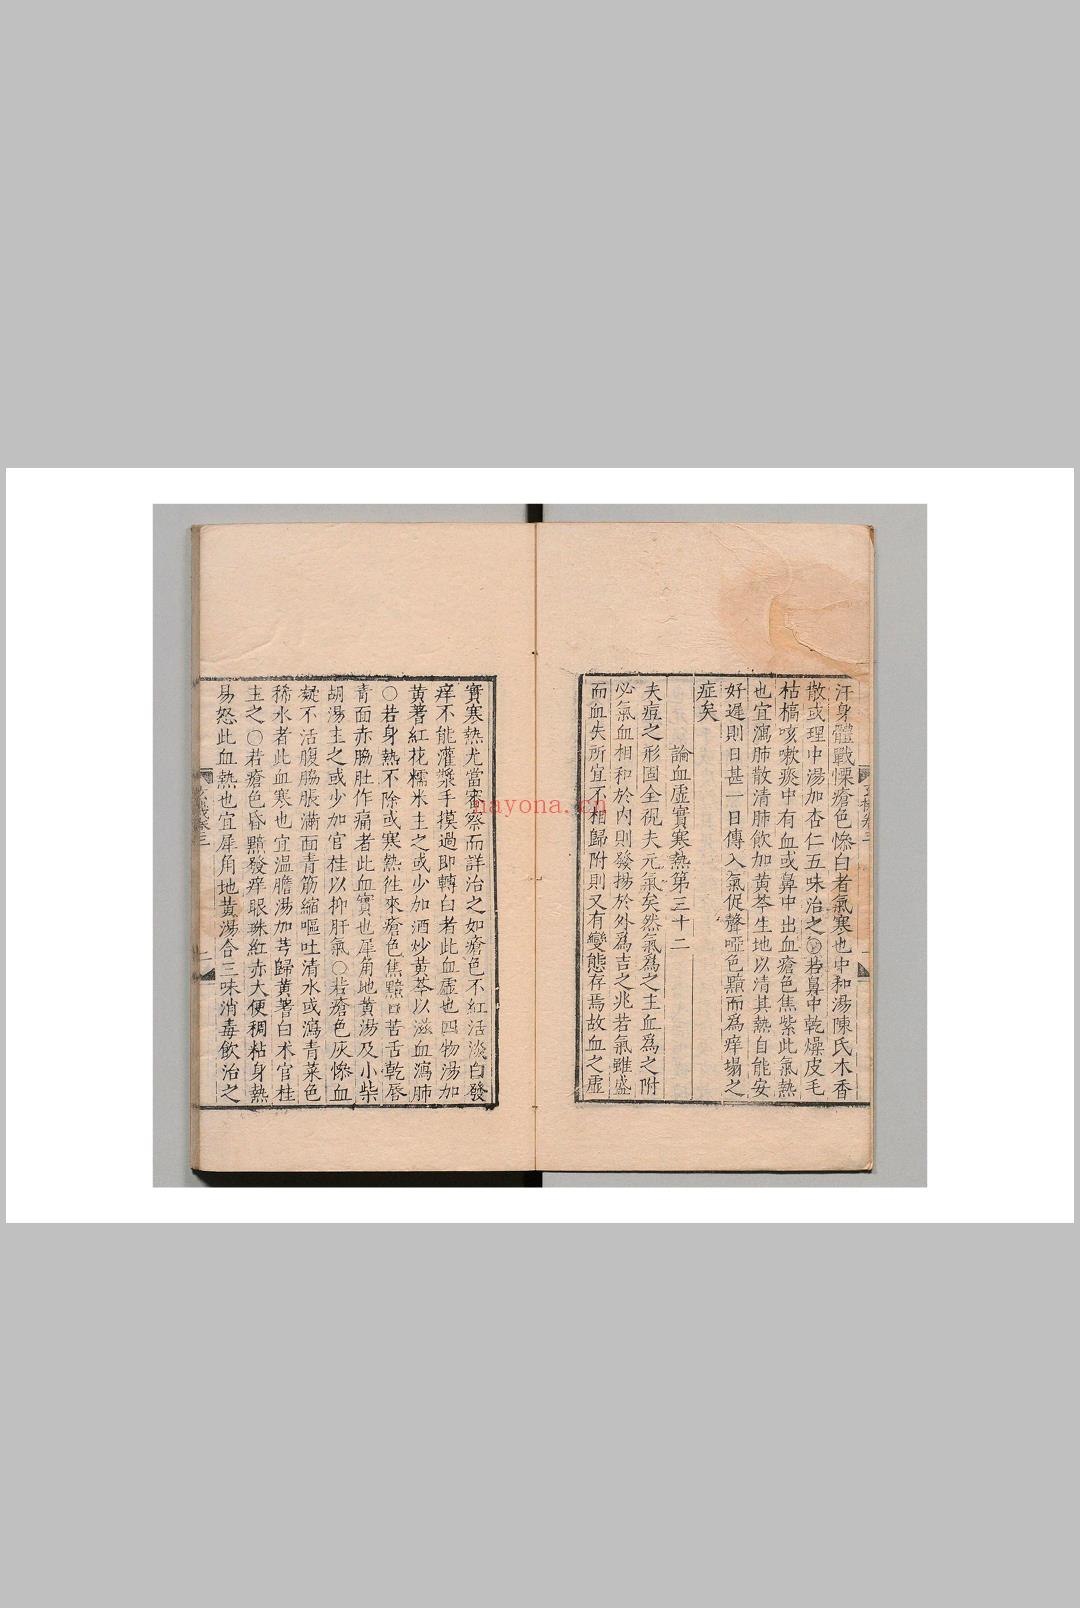 汗身體戰慄瘡色慘白者氣寒也中和湯陳氏木香
散或理中湯加杏仁五味治之〇若鼻中乾燥皮毛
枯槁咳嗽痰中有血或鼻中出血瘡色焦紫此氣熱
也宜瀉肺散清肺飲加黄芩生地以清其熱自能安
好遲則日甚一日傳入氣促聲啞色黯而爲痒塌之
症矣
論血虛實寒熱第三十二
夫痘之形固全視夫元氣矣然氣爲之主血爲之附
必氣血相和於内則發揚於外爲吉之兆若氣雖盛
而血失所宜不相歸附則又有變態存焉故血之虛
實寒熱尤當審察而詳治之如瘡色不紅活淡白發
痒不能灌漿手摸過即轉白者此血虛也四物湯加
黄蓍紅花糯米主之或少加酒炒黄芩以滋血瀉肺
〇若身熱不除或寒熱徃來瘡色焦黯口苦舌乾唇
青面赤脇肚作痛者此血實也犀角地黄湯及小柴
胡湯主之或少加官桂以抑肝氣〇若瘡色灰慘血
凝不活腹脇脹滿面青筋縮嘔吐清水或瀉青菜色
稀水者此血寒也宜温膽湯加芎歸黄蓍白术官桂
主之〇若瘡色昏黯發痒眼珠紅赤大便稠粘身熱
易怒此血熱也宜犀角地黄湯合三味消毒飲治之
nayona.cn